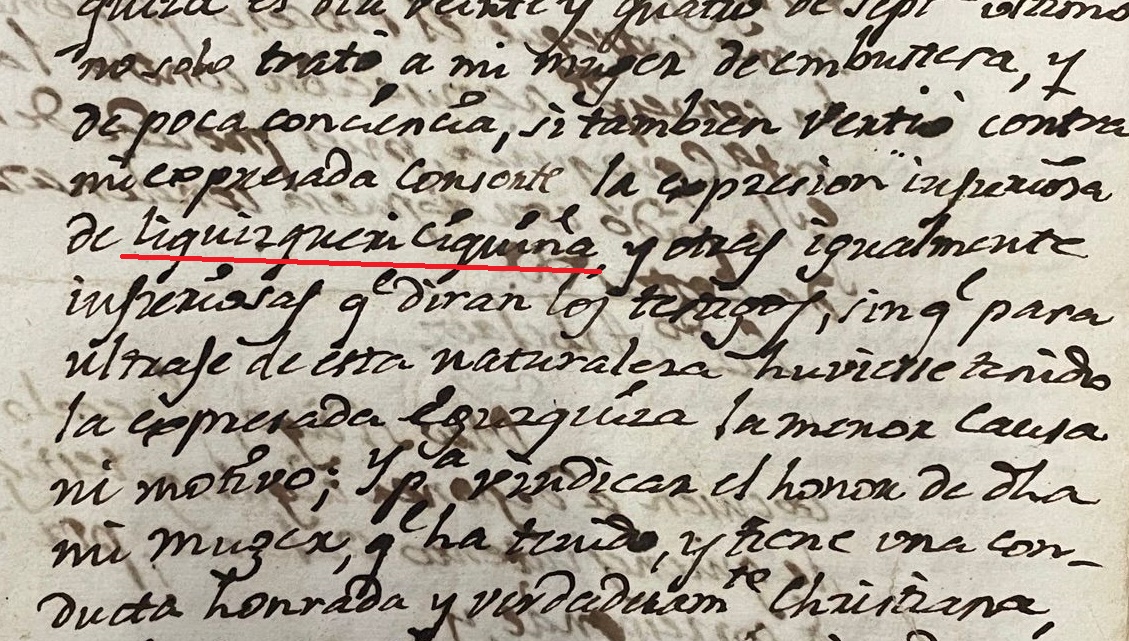 quiza es dia veinte y quatro de sept.e ultimo
no solo trató a mi muger de embustera, y
de poca conciencia, si tambien vertió contra
mi expresada consorte la expresion injuriosa
de liquizqueri ciquiña, y otras igualmente
injuriosas q.e diran los testigos, sin q.e para
ultraje de esta naturaleza huviese tenido
la expresada Eguzquiza la menor causa
ni motivo; y p.a vindicar el honor de dha
mi muger, q.e ha tenido, y tiene una con-
ducta honrada y verdaderam.te Christiana,